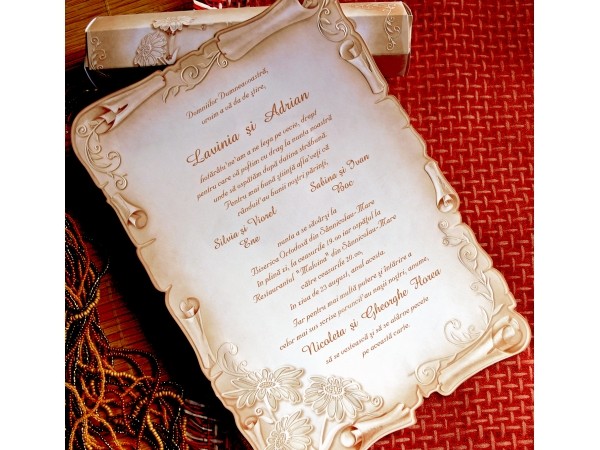 Domniilor Dumneavoastră,
vrem a vă da de știre,
Lavinia și Adrian
hotărâtu-ne-am a ne lega pe vecie, drept
pentru care vă poftim cu drag la nunta noastră
unde să ospătăm după datina străbună.
Pentru mai bună știință aflați că
rânduit-au bunii noștri părinți,
Silvia și Viorel
Ene
Sabina și Ivan
Booc
nunta a se săvârși la
Biserica Ortodoxă din Sânnicolau-Mare
în plină zi, la ceasurile 19.00 iar ospățul la
Restaurantul "Malvina" din Sânnicolau-Mare
către ceasurile 20.00,
în ziua de 23 august, anul acesta.
Iar pentru mai multă putere și întărire a
celor mai sus scrise poruncit-au nașii noștri, anume,
Nicoleta și Gheorghe Horea
să se vestească și să se aștearnă
pe această carte.